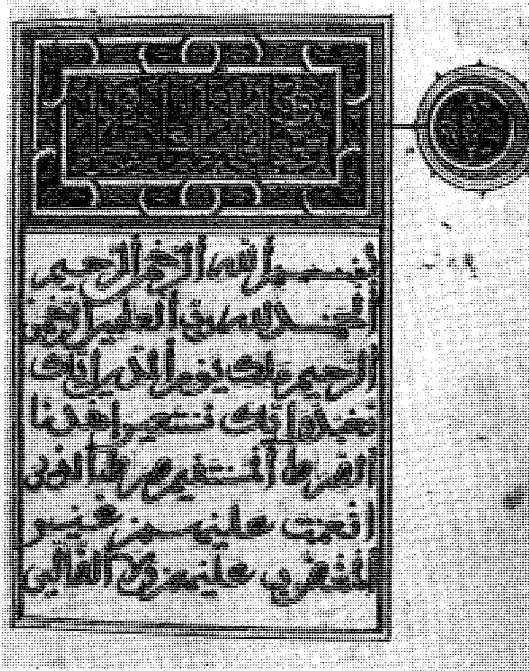 بسم الله الرحمن الرحيم
الحمد لله رب العلمين الرحمن
الرحيم ملك يوم الدين اياك
نعبد واياك نستعين اهدنا
الصرط المستقيم صرط الذين
انعمت عليهم غير
المغضوب عليهم ولا الضالين